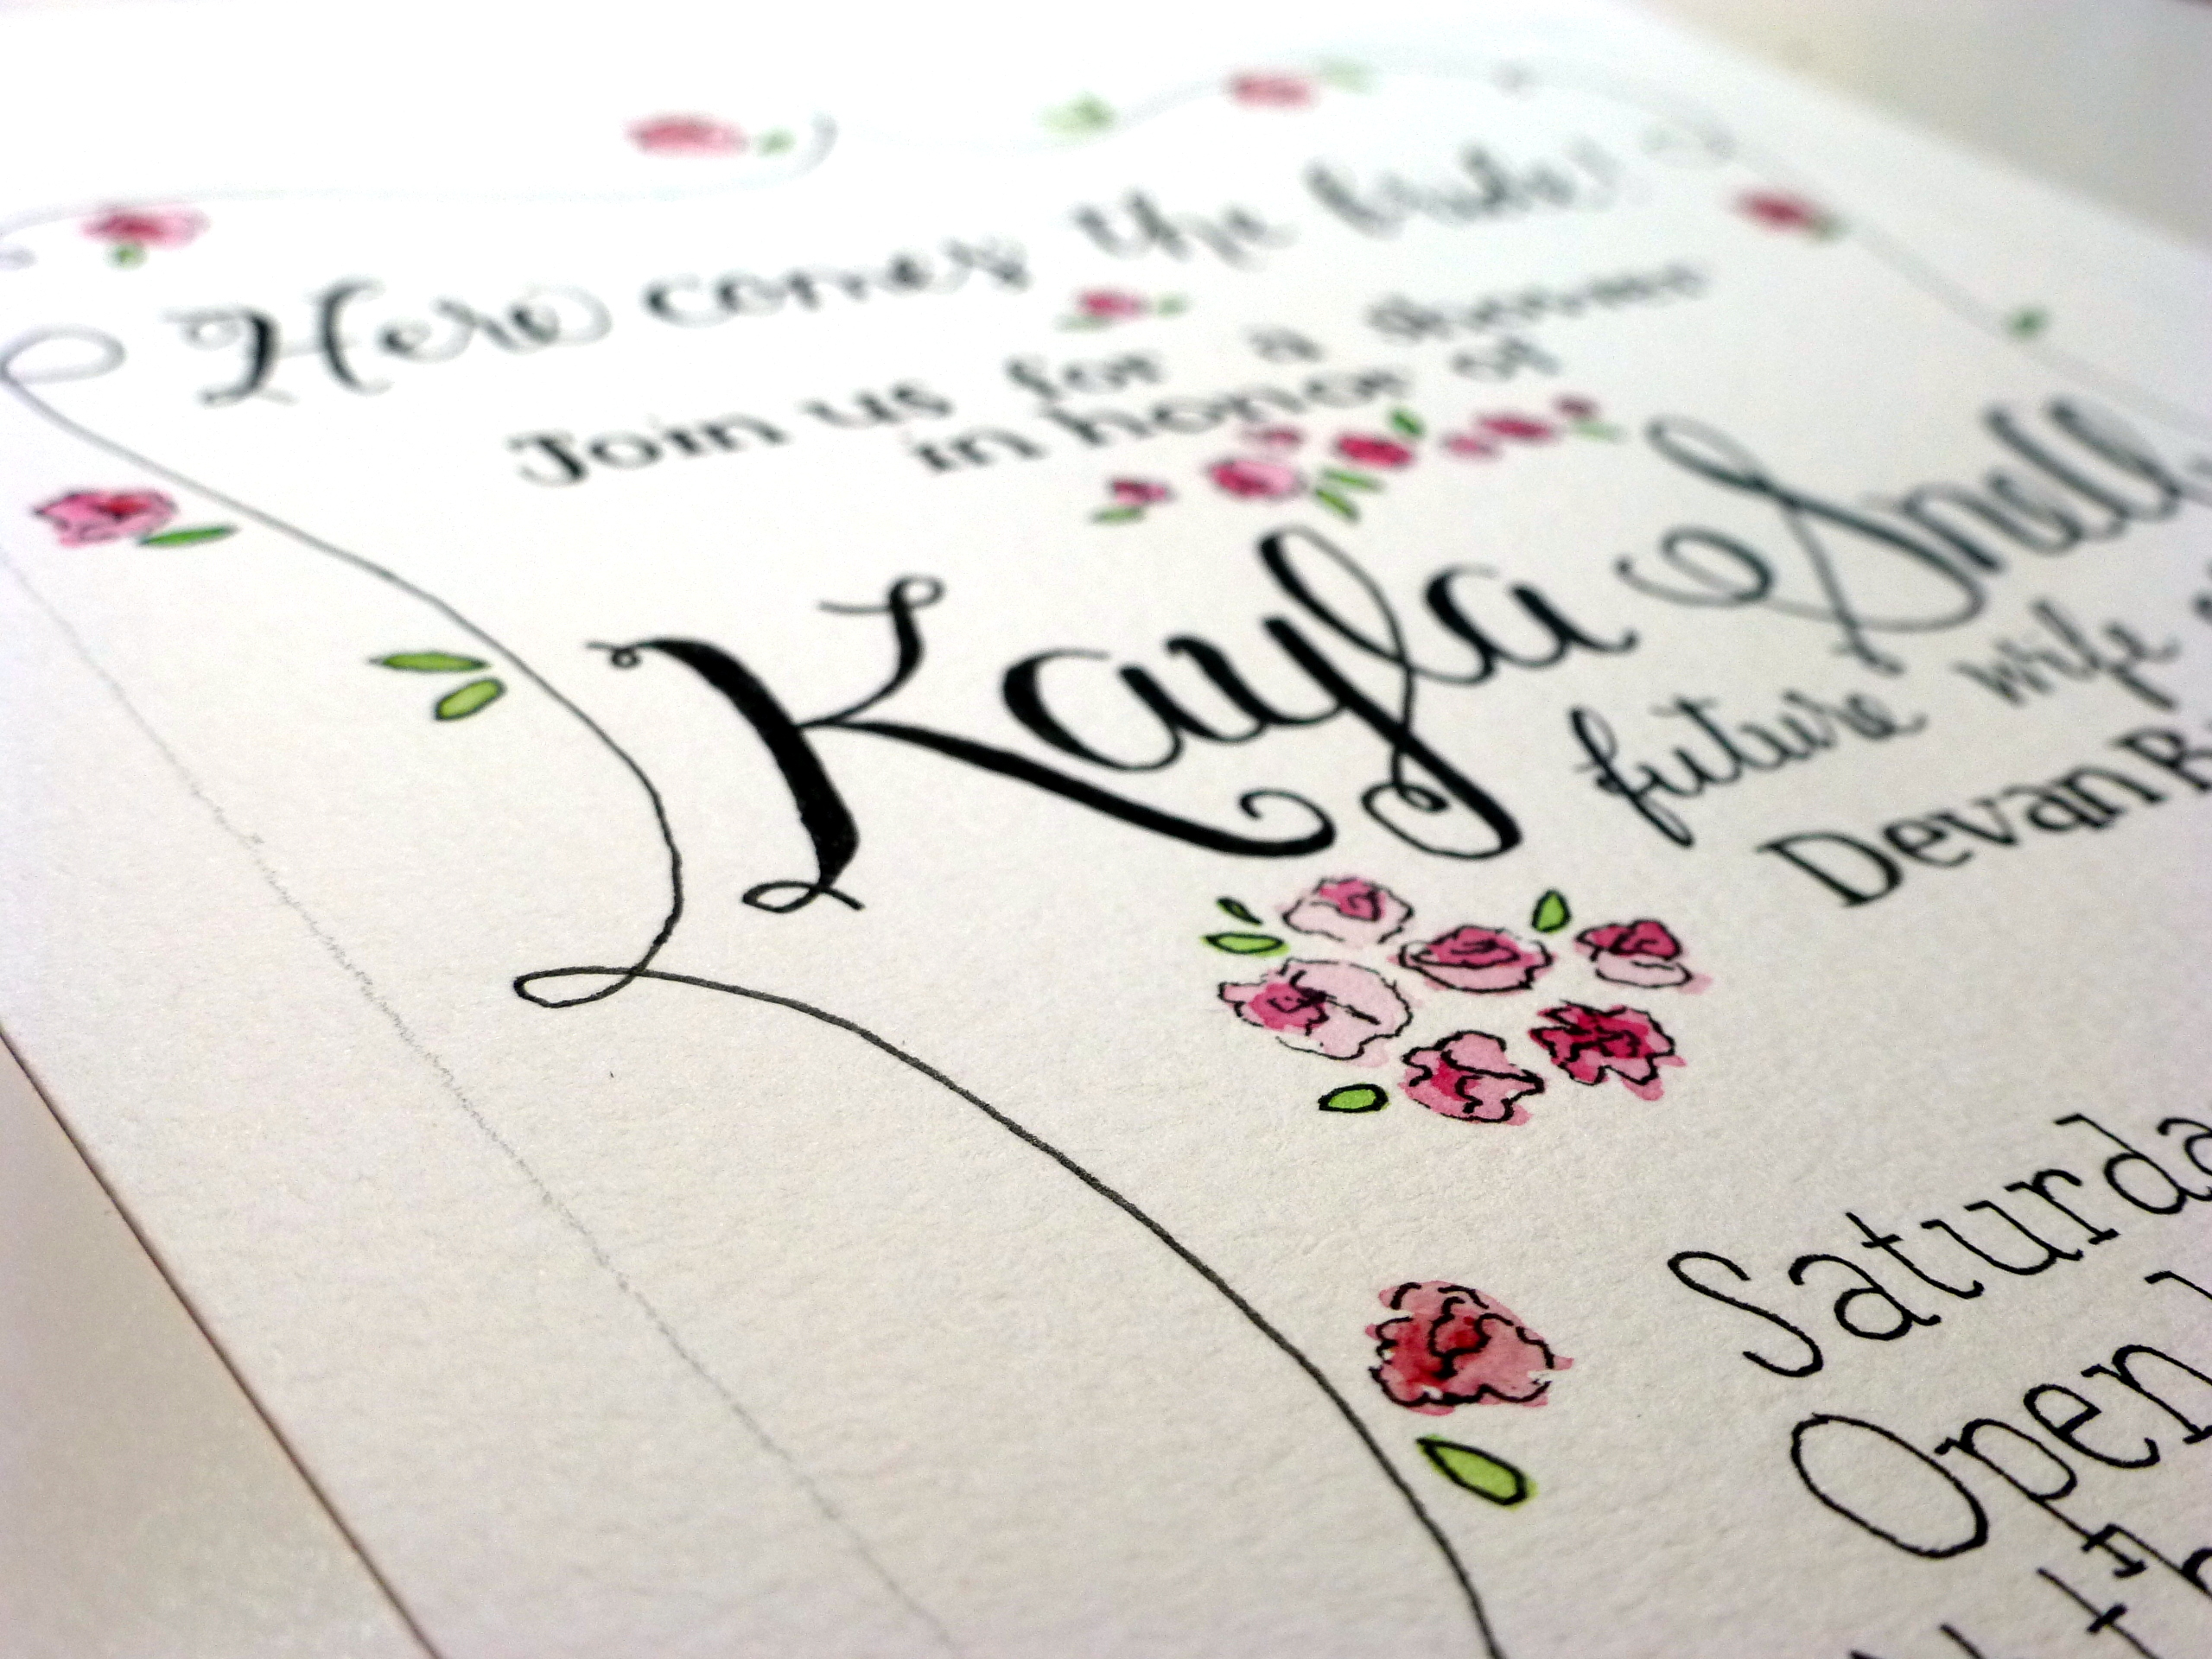 Here comes the bride!
Join us for a shower
in honor of
Kayla Small
future wife
Devan B
Saturda
Open